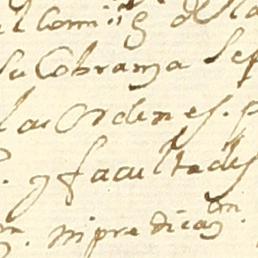 el Comiʳᵍ de la
su Cobranza Se
las Ordenes. p
. y facultades
m. ni predicaᵒⁿ.